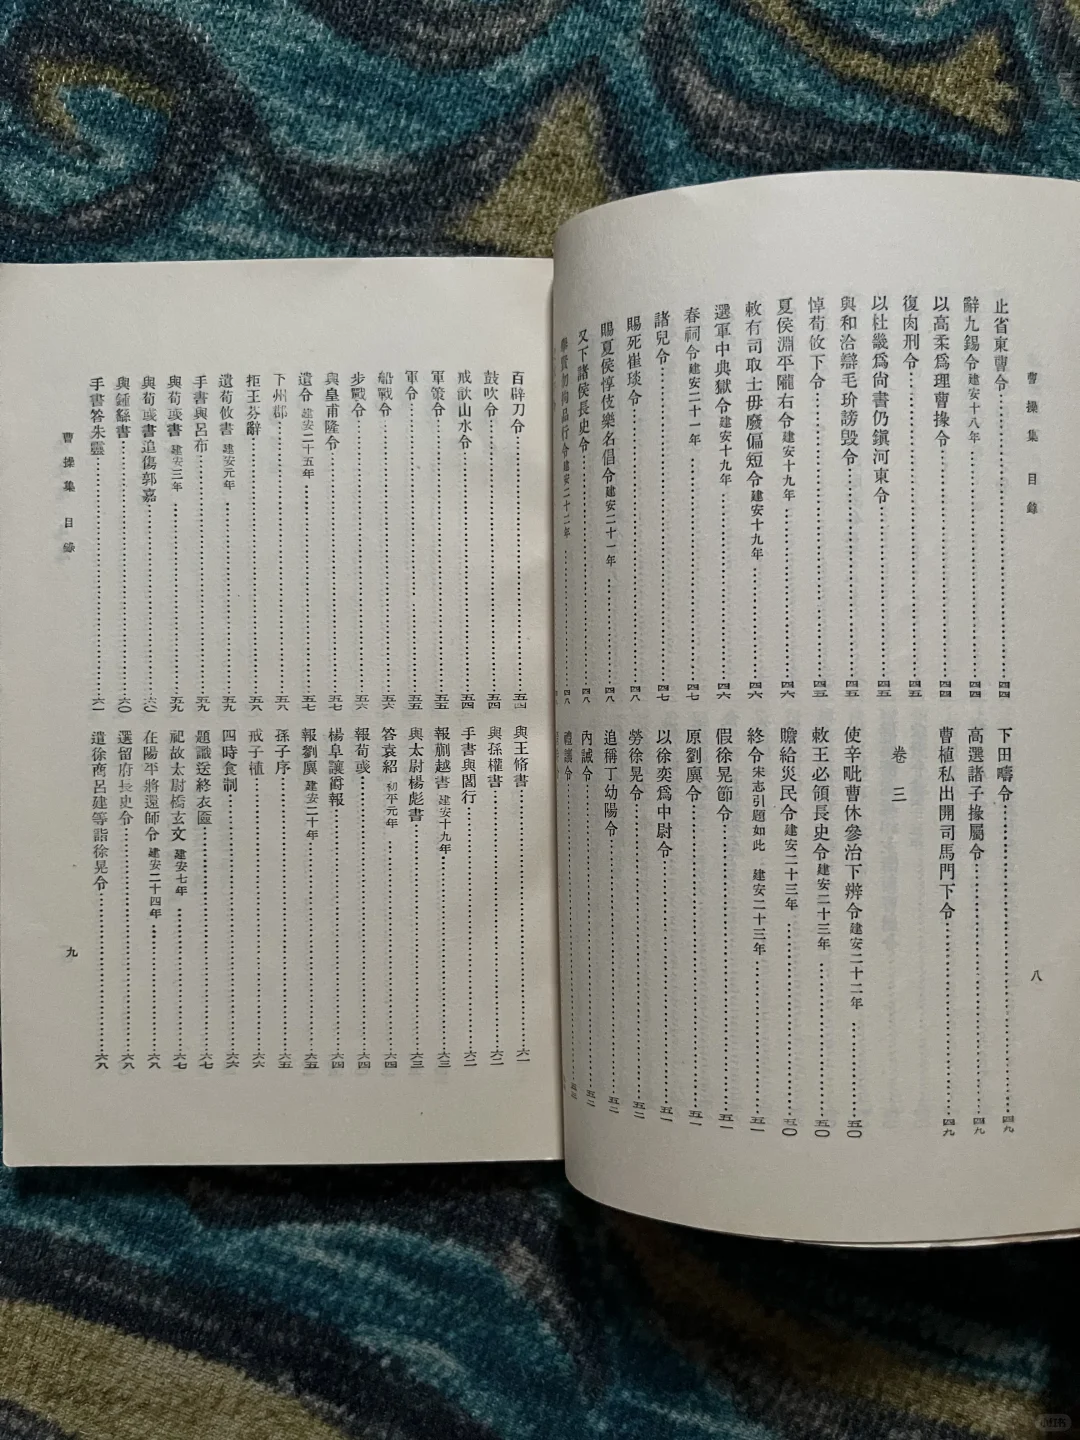 曹操集 目錄
八
止省東曹令……四四
辭九錫令 建安十八年……四四
以高柔爲理曹掾令……四四
復肉刑令……四五
以杜畿爲尙書仍鎮河東令……四五
與和洽辯毛玠謗毀令……四五
悼荀攸下令……四五
夏侯淵平隴右令 建安十九年……四六
敕有司取士毋廢偏短令 建安十九年……四六
選軍中典獄令 建安十九年……四六
春祠令 建安二十一年……四七
諸兒令……四七
賜死崔琰令……四八
賜夏侯惇伎樂名倡令 建安二十一年……四八
又下諸侯長史令……四八
舉賢勿拘品行令 建安二十二年……四八
下田疇令……四九
高選諸子掾屬令……四九
曹植私出開司馬門下令……四九
卷三
使辛毗曹休參治下辨令 建安二十二年……五〇
敕王必領長史令 建安二十三年……五〇
贍給災民令 建安二十三年……五〇
終令 宋志引題如此 建安二十三年……五一
假徐晃節令……五一
原劉廙令……五一
以徐奕爲中尉令……五一
勞徐晃令……五二
追稱丁幼陽令……五二
內誡令……五二
禮讓令
百辟刀令……五四
鼓吹令……五四
戒飲山水令……五四
軍策令……五五
軍令……五五
船戰令……五六
步戰令……五六
與皇甫隆令……五七
遺令 建安二十五年……五七
下州郡……五八
拒王芬辭……五八
遺荀攸書 建安元年……五九
手書與呂布……五九
與荀彧書 建安三年……五九
與荀彧書追傷郭嘉……六〇
與鍾繇書……六〇
手書答朱靈……六一
與王脩書……六一
與孫權書……六二
手書與閻行……六二
報蒯越書 建安十九年……六三
與太尉楊彪書……六三
答袁紹 初平元年……六四
報荀彧……六四
楊阜讓爵報……六四
報劉廙 建安二十年……六五
孫子序……六五
戒子植……六六
四時食制……六六
題識送終衣匲……六七
祀故太尉橋玄文 建安七年……六七
在陽平將還師令 建安二十四年……六八
選留府長史令……六八
遣徐商呂建等詣徐晃令……六八
曹操集 目錄
九